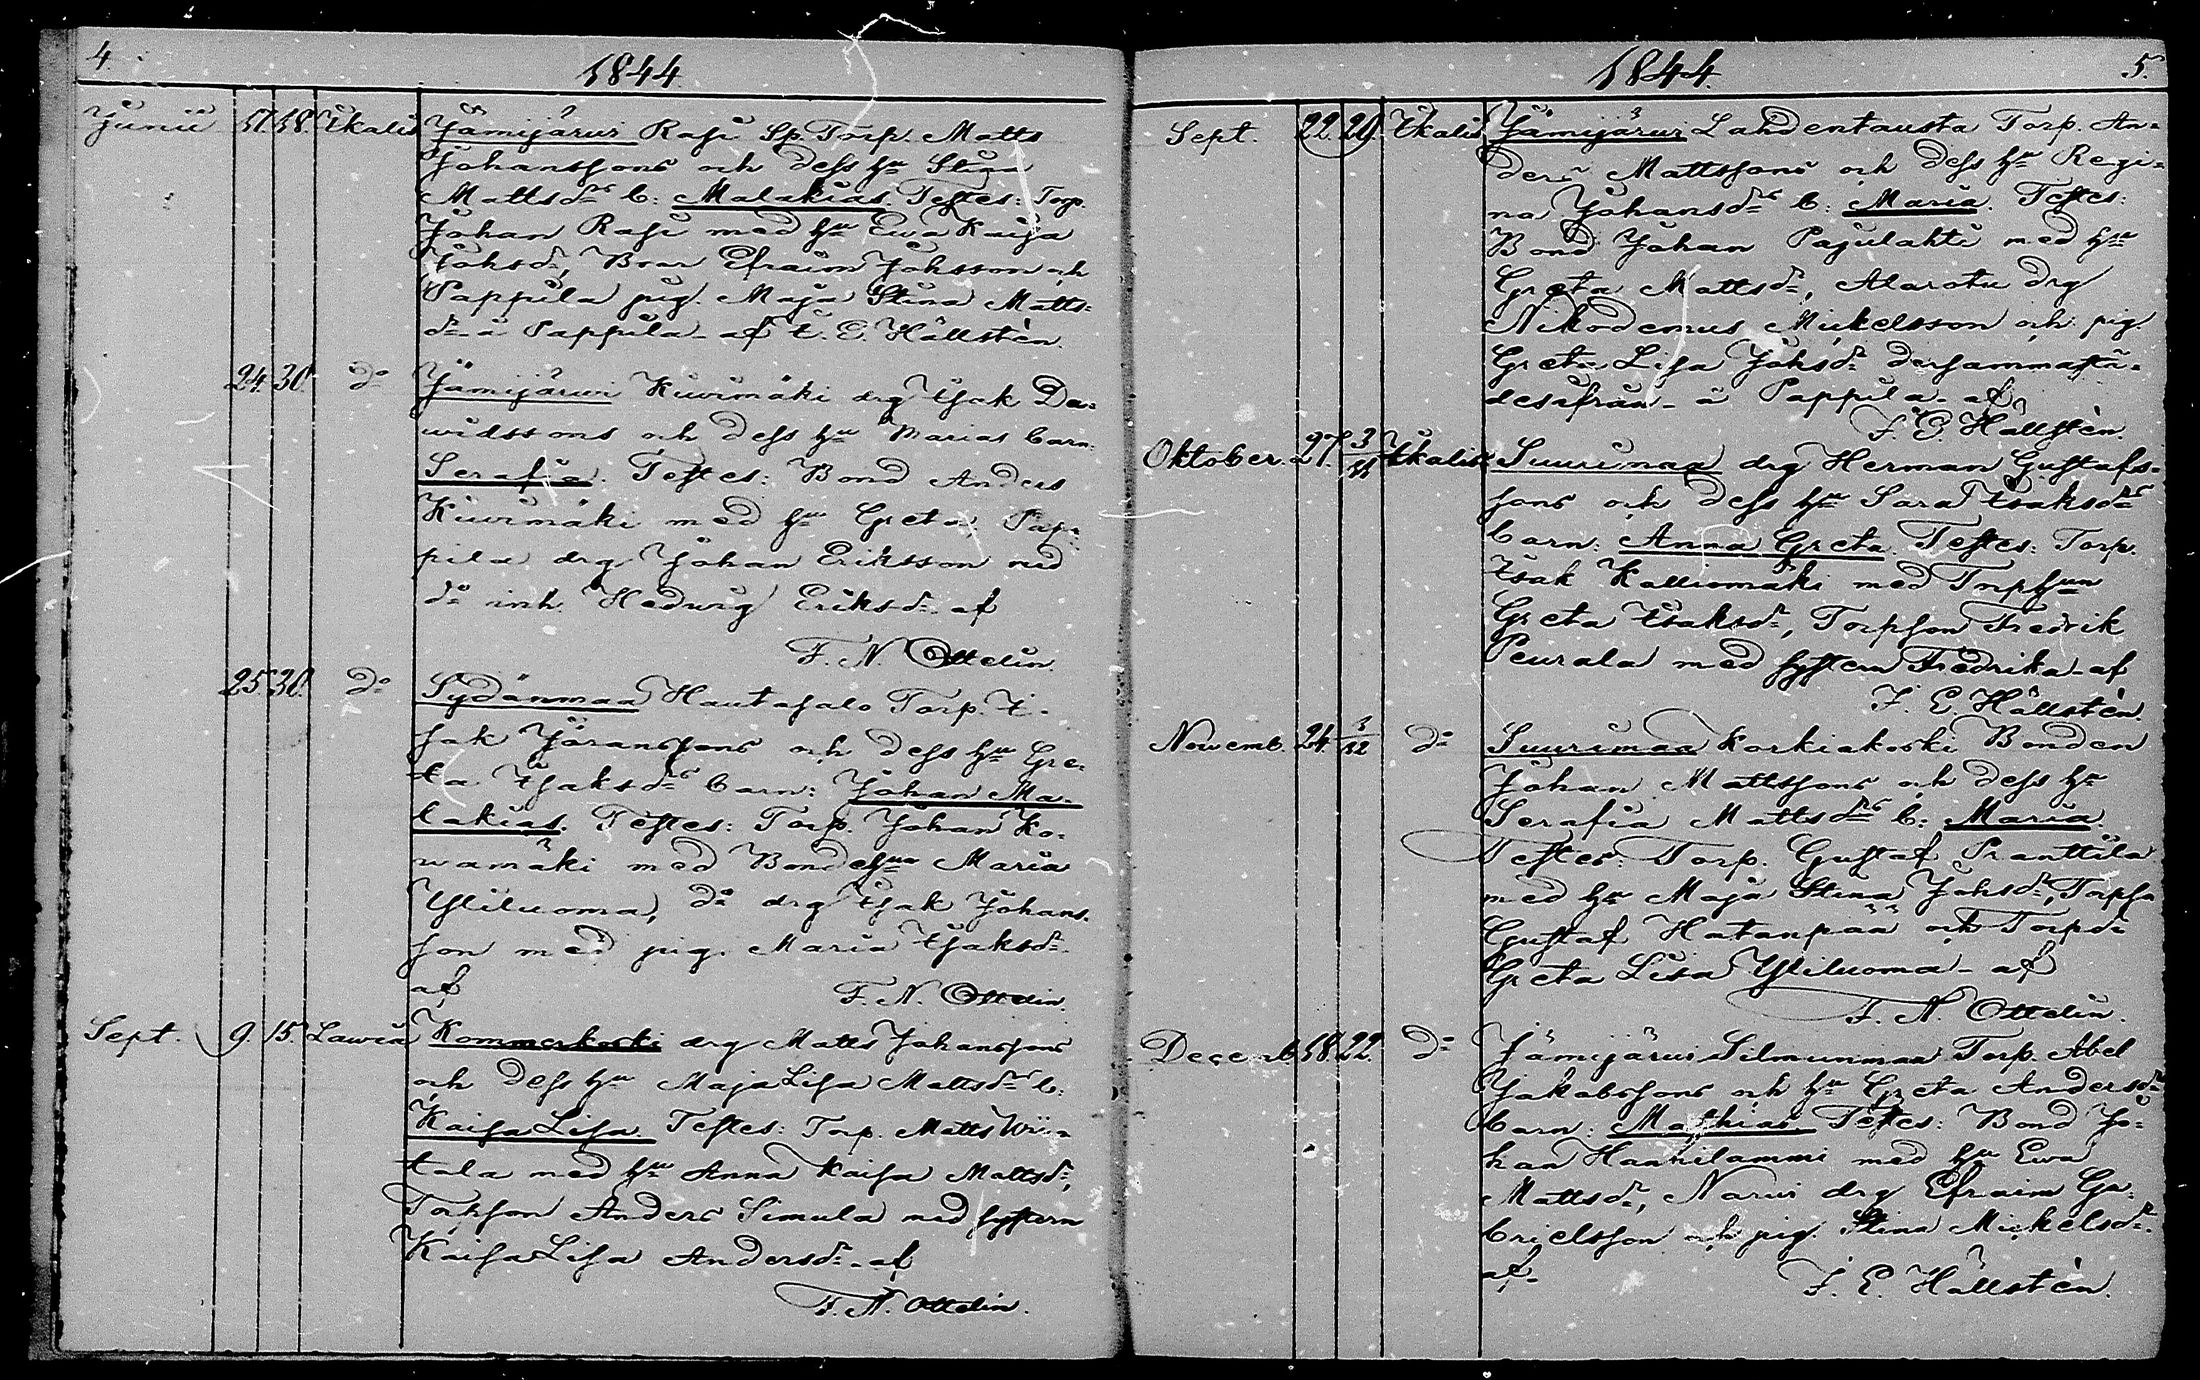 4.
1844.
Junii 17. 18. Ikalis Jämijärwi Rasi Sp. Torp. Matts
Johanssons och dess hu Stina
Mattsdrs b: Malakias. Testes: Torp.
Johan Rasi med hu Ewa Kaisa
Johsdr, Broar Efraim Johsson och
Pappila pig. Maja Stina Matts-
dr i Pappila af F. E. Hällstén.
24. 30. do Jämijärwi Kuurmäki drg Isak Da-
widssons och dess hu Marias barn.
Serafia. Testes: Bond Anders
Kuurmäki med hu Greta, Pap-
pila drg Johan Eriksson med
do inh. Hedwig Eriksdr af
F. N. Ottelin
25. 30. do Sydänmaa Hautasalo Torp. I-
sak Jöranssons och dess hu Gre-
ta Isaksdrs barn: Johan Ma-
lakias. Testes: Torp. Johan Ko-
wamäki med Bondehun Maria
Yliluoma, do drg Isak Johans-
son med pig. Maria Isaksdr
af
F. N. Ottelin.
Sept. 9. 15. Lawia Kommerkoski drg Matts Johanssons
och dess hu Maja Lisa Mattsdrs b:
Kaisa Lisa. Testes: Torp. Matts Wii-
tala med hu Anna Kaisa Mattsdr,
Torpson Anders Simula med systern
Kaisa Lisa Andersdr af
F. N. Ottelin.
1844.
5.
Sept. 22. 29. Ikalis Jämijärwi Lahdentausta Torp. An-
ders Mattssons och dess hu Regi-
na Johansdrs b: Maria. Testes:
Bond Johan Pajulahti med hu
Greta Mattsdr, Alarotu drg
Nikodemus Mickelsson och pig.
Greta Lisa Johsdr dersammastä-
desifrån i Pappila af
F. E. Hällstén.
Oktober. 27. 3/11 Ikalis Suurimaa drg Herman Gustafs-
sons och dess hu Sara Isaksdrs
barn: Anna Greta. Testes: Torp.
Isak Kalliomäki med Torphun
Greta Isaksdr, Torpson Fredrik
Peurala med systern Fredrika af
F. E. Hällstén.
Novemb. 24. 3/12 do Suurimaa Korkiakoski Bonden
Johan Mattssons och dess hu
Serafia Mattsdrs b: Maria.
Testes: Torp. Gustaf Pranttila
med hu Maja Stina Johsdr, Torpson
Gustaf Hatanpää och Torpdr
Greta Lisa Yliluoma af
F. N. Ottelin.
Decemb. 18. 22. do Jämijärwi Silmunmaa Torp. Abel
Jakobssons och hu Greta Andersdrs
barn: Mathias. Testes: Bond Jo-
han Hannilammi med hu Ewa
Mattsdr, Narwi drg Efraim Ga-
brielsson och pig. Stina Mickelsdr
af
F. E. Hällstén.